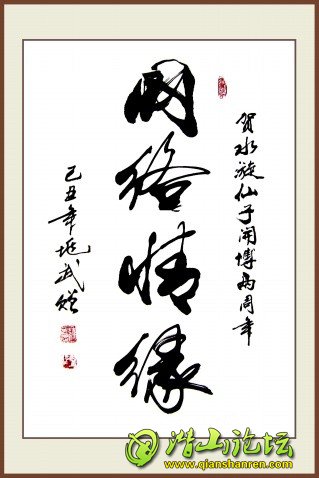 贺水旋仙子開博两周年
网络情缘
己丑年
潜山论坛
www.qianshanren.com